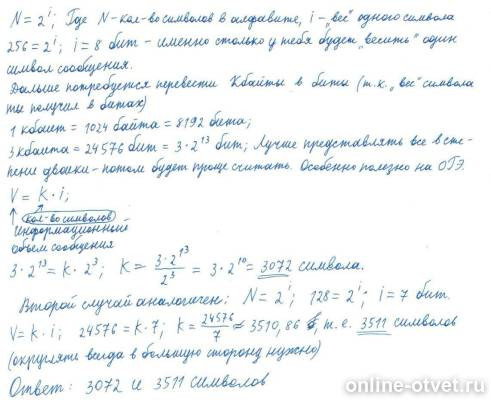 N = 2^i; Где N - кол-во символов в алфавите, i - "вес" одного символа
256 = 2^i; i = 8 бит - именно столько у тебя будет "весить" один
символ сообщения.
Дальше потребуется перевести Кбайты в биты (т.к. "вес" символа
ты получил в битах)
1 кбайт = 1024 байта = 8192 бита;
3 кбайта = 24576 бит = 3·2^13 бит; Лучше представлять все в сте-
пени двойки - потом будет проще считать. Особенно полезно на ОГЭ.
V = K·i;
кол-во символов
информационный
объем сообщения
3·2^13 = K·2^3; K = 3·2^13/2^3 = 3·2^10 = 3072 символа.
Второй случай аналогичен: N = 2^i; 128 = 2^i; i = 7 бит.
V = K·i; 24576 = K·7; K = 24576/7 ≈ 3510,86 т.е. 3511 символов
(округлять всегда в большую сторону нужно)
Ответ: 3072 и 3511 символов
online-otvet.ru